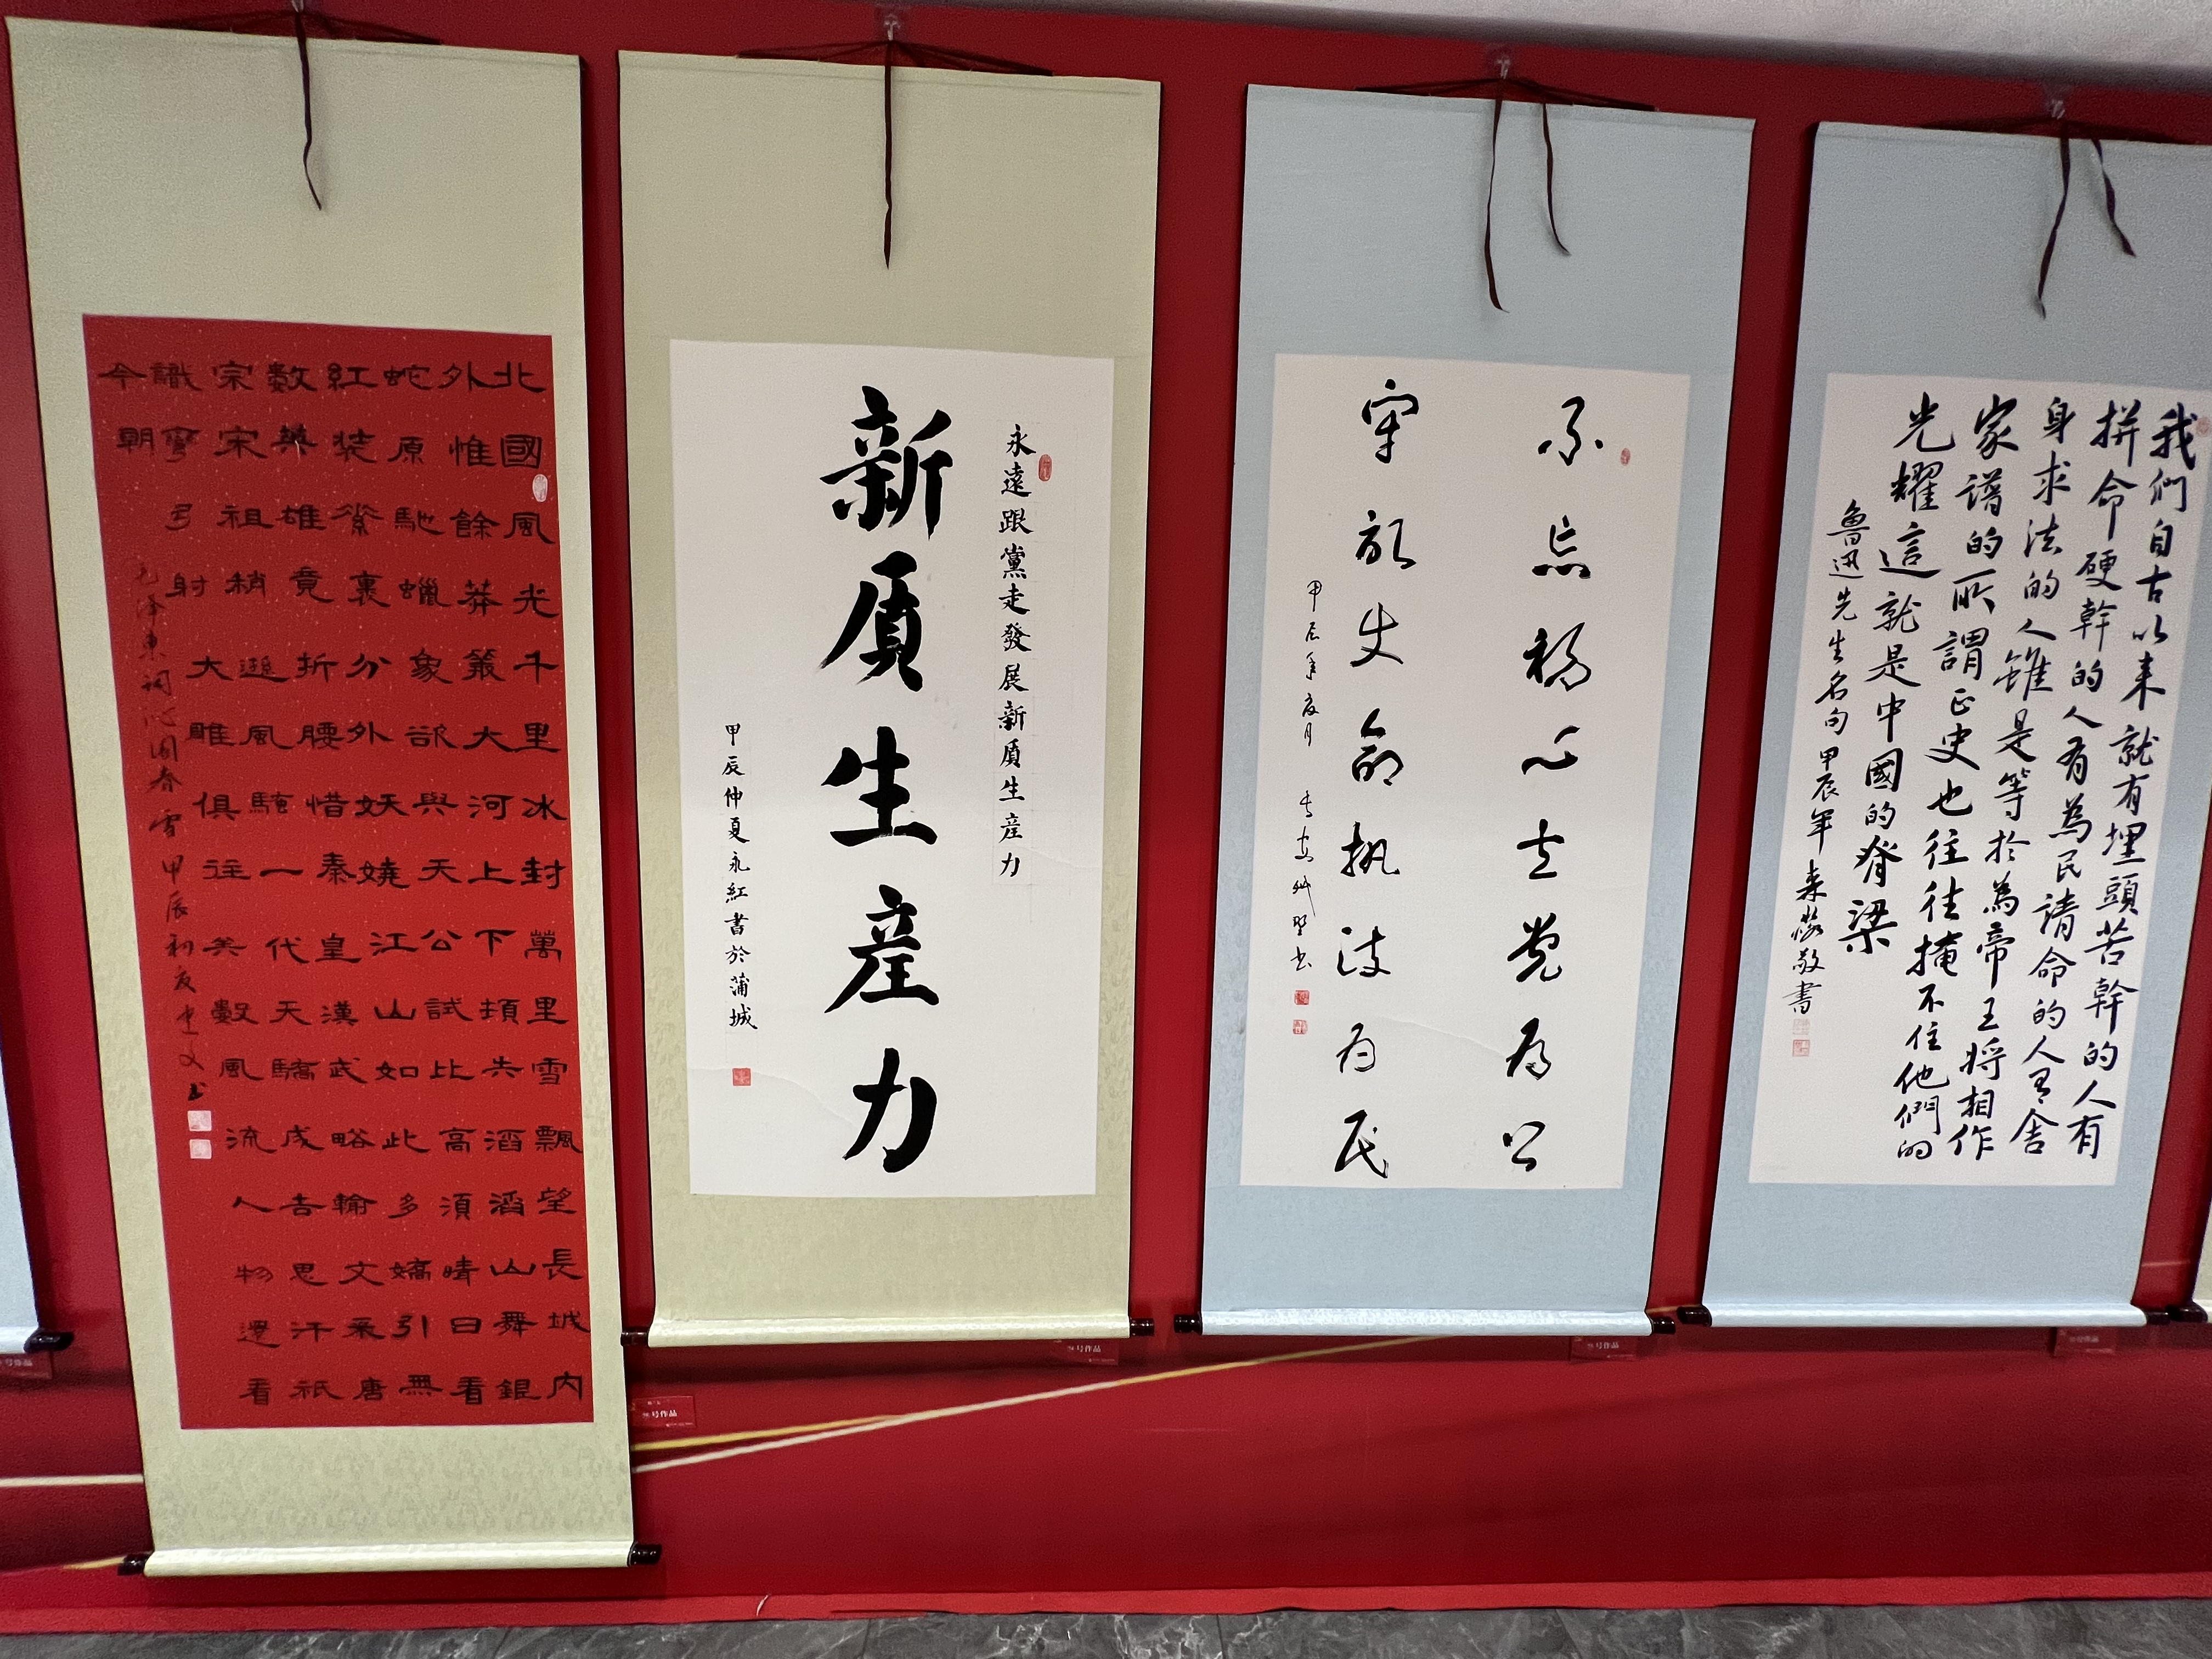 北國風光千里冰封萬里雪飄望長城內
外惟餘莽莽大河上下頓失滔滔山舞銀
蛇原馳蠟象欲與天公試比高須晴日看
紅裝素裹分外妖嬈江山如此多嬌引無
數英雄竟折腰惜秦皇漢武略輸文采唐
宗宋祖稍遜風騷一代天驕成吉思汗祇
識彎弓射大雕俱往矣數風流人物還看
今朝
毛澤東詞沁園春雪 甲辰初夏建文书
永遠跟黨走發展新質生產力
新質生產力
甲辰仲夏永紅書於蒲城
不忘初心立党为公
牢记使命执政为民
甲辰年夏月
我們自古以来就有埋頭苦幹的人有
拼命硬幹的人有為民請命的人有舍
身求法的人雖是等於為帝王將相作
家譜的所謂正史也往往掩不住他們的
光耀這就是中國的脊梁
魯迅先生名句 甲辰年 敬書
号作品
号作品
号作品
号作品
号作品